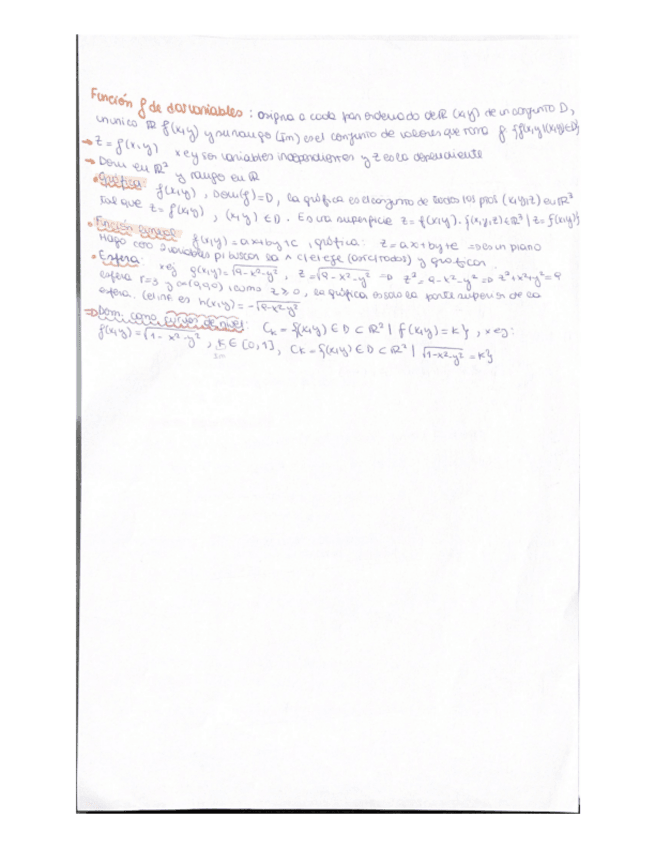 Función f de dos variables : asigna a cada par ordenado de ℝ (x,y) de un conjunto D,
un unico ℝ f(x,y) y su rango (Im) es el conjunto de valores que toma f {f(x,y)|(x,y)∈D}
→ z = f(x,y) x e y son variables independientes y z es la dependiente
→ Dom en ℝ² y rango en ℝ
• Gráfica: f(x,y), Dom(f)=D, la gráfica es el conjunto de todos los ptos (x,y,z) en ℝ³
tal que z = f(x,y), (x,y) ∈ D. Es una superficie z = f(x,y). {(x,y,z)∈ℝ³ | z = f(x,y)}
• Función lineal: f(x,y)=ax+by+c, gráfica: z=ax+by+c => es un plano
Hago cero 2 variables p/ buscar la ∩ c/ el eje (asi c/ todos) y graficar
• Esfera: x ej g(x,y)=√9-x²-y², z=√9-x²-y² => z²=9-x²-y² => z²+x²+y²=9
esfera r=3 y (0,0,0), como z≥0, la gráfica es solo la parte superior de la
esfera. (el inf es h(x,y)=-√9-x²-y²
=> Dom. como curvas de nivel: Ck = {(x,y) ∈ D ⊂ ℝ² | f(x,y)=k}, x ej:
f(x,y)=√1-x²-y², k ∈ [0,1], Ck = {(x,y) ∈ D ⊂ ℝ² | √1-x²-y² = k}
Im